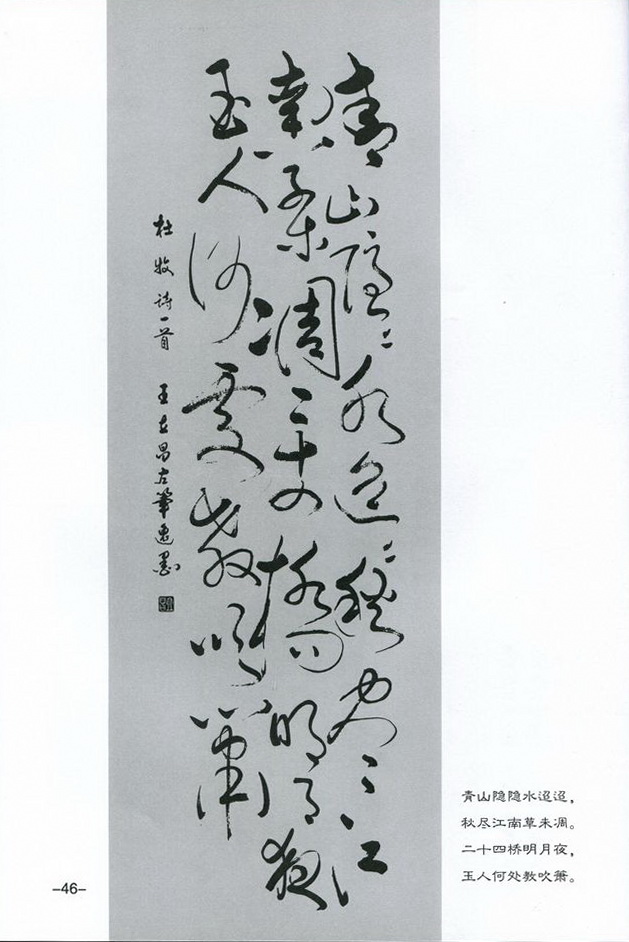 青山隐〻水迢〻秋尽江
南草未凋二十四桥明月夜
玉人何处教吹箫
杜牧诗一首 王昌左筆墨
青山隐隐水迢迢，
秋尽江南草未凋。
二十四桥明月夜，
玉人何处教吹箫。
-46-